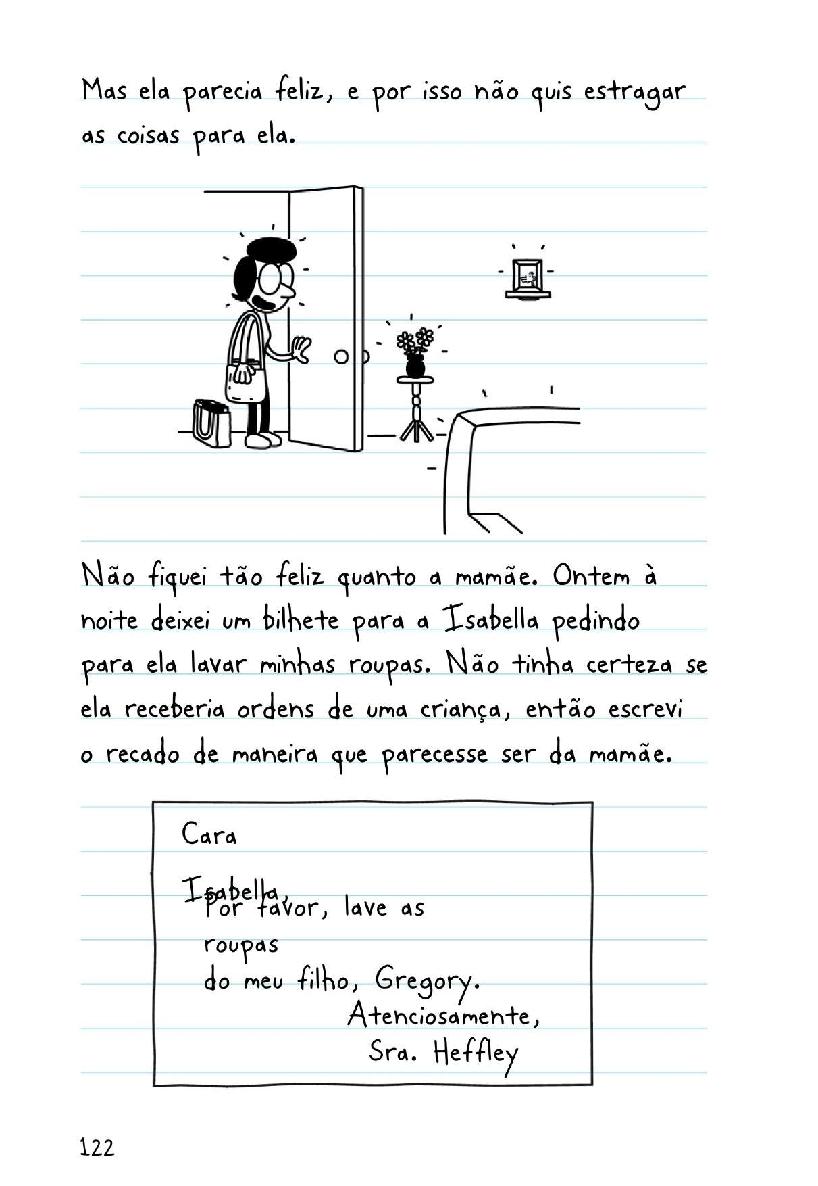 Mas ela parecia feliz, e por isso não quis estragar
as coisas para ela.
Não fiquei tão feliz quanto a mamãe. Ontem à
noite deixei um bilhete para a Isabella pedindo
para ela lavar minhas roupas. Não tinha certeza se
ela receberia ordens de uma criança, então escrevi
o recado de maneira que parecesse ser da mamãe.
Cara
Isabella,
Por favor, lave as
roupas
do meu filho, Gregory.
Atenciosamente,
Sra. Heffley
122